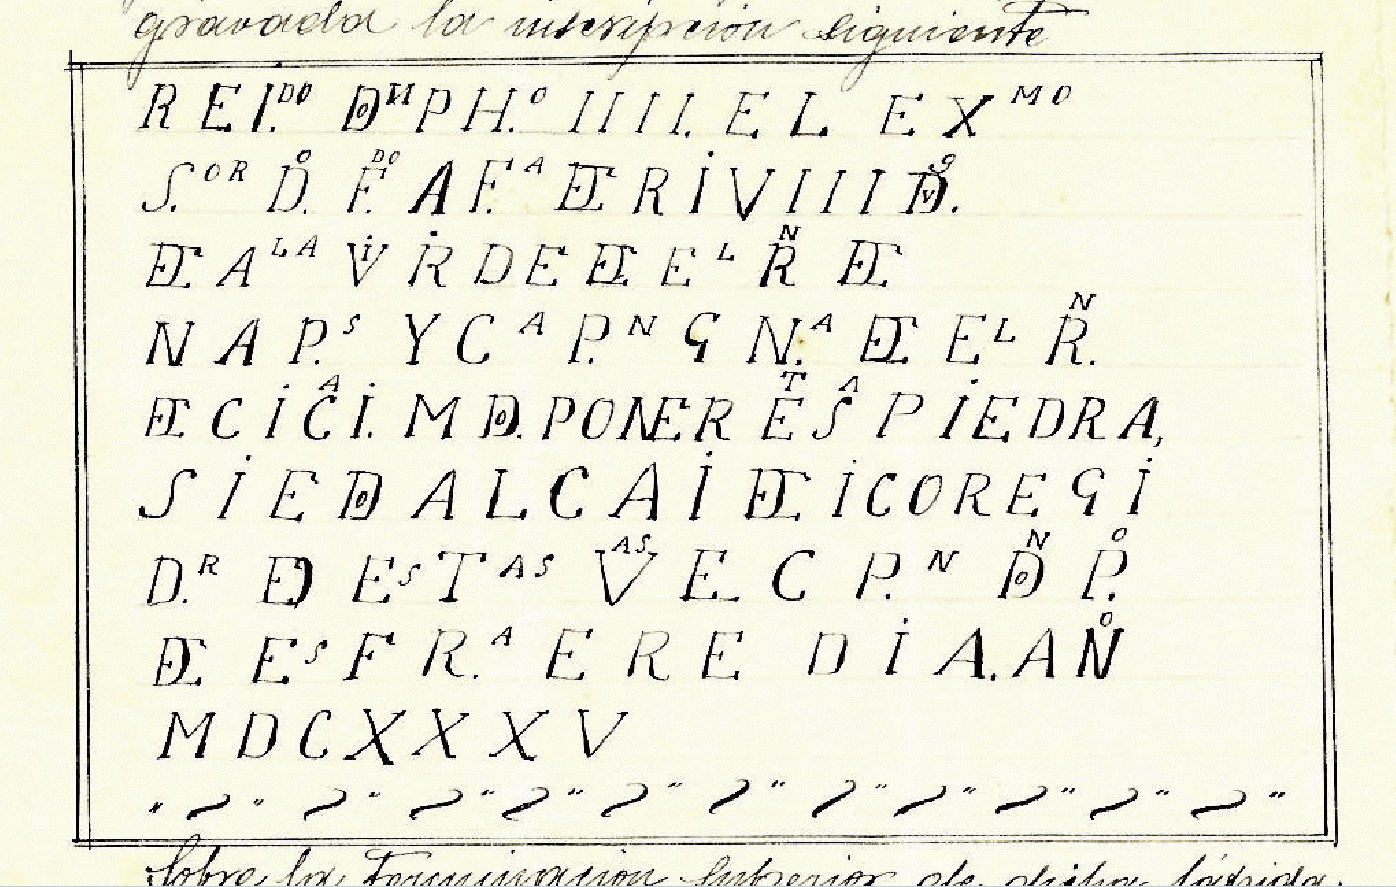 gravada la inscripcion siguiente
REI.ᴰᴼ DᴺPH.ᴼ IIII. EL EXᴹᴼ
S.ᴼᴿ D.ᴼ F.ᴰᴼ AF.ᴬ DE RiVIIII D.
DE Aᴸᴬ Vi RDE DE Eᴸ Rᴺ DE
NAP.ˢ YCᴬ P.ᴺ GN.ᴬ DE Eᴸ R.ᴺ
DE CiCᴬi. MDO. PONER Eᵀ Sᴬ PiEDRA,
SiEDO ALCAiDE iCOREGi
D.ᴿ DE EˢTᴬˢ Vᴬˢ E C P.ᴺ DOᴺ P.ᴼ
DE EˢFR.ᴬ EREDiA. ANᴼ
MDCXXXV
Sobre la terminacion superior de dicha lápida.